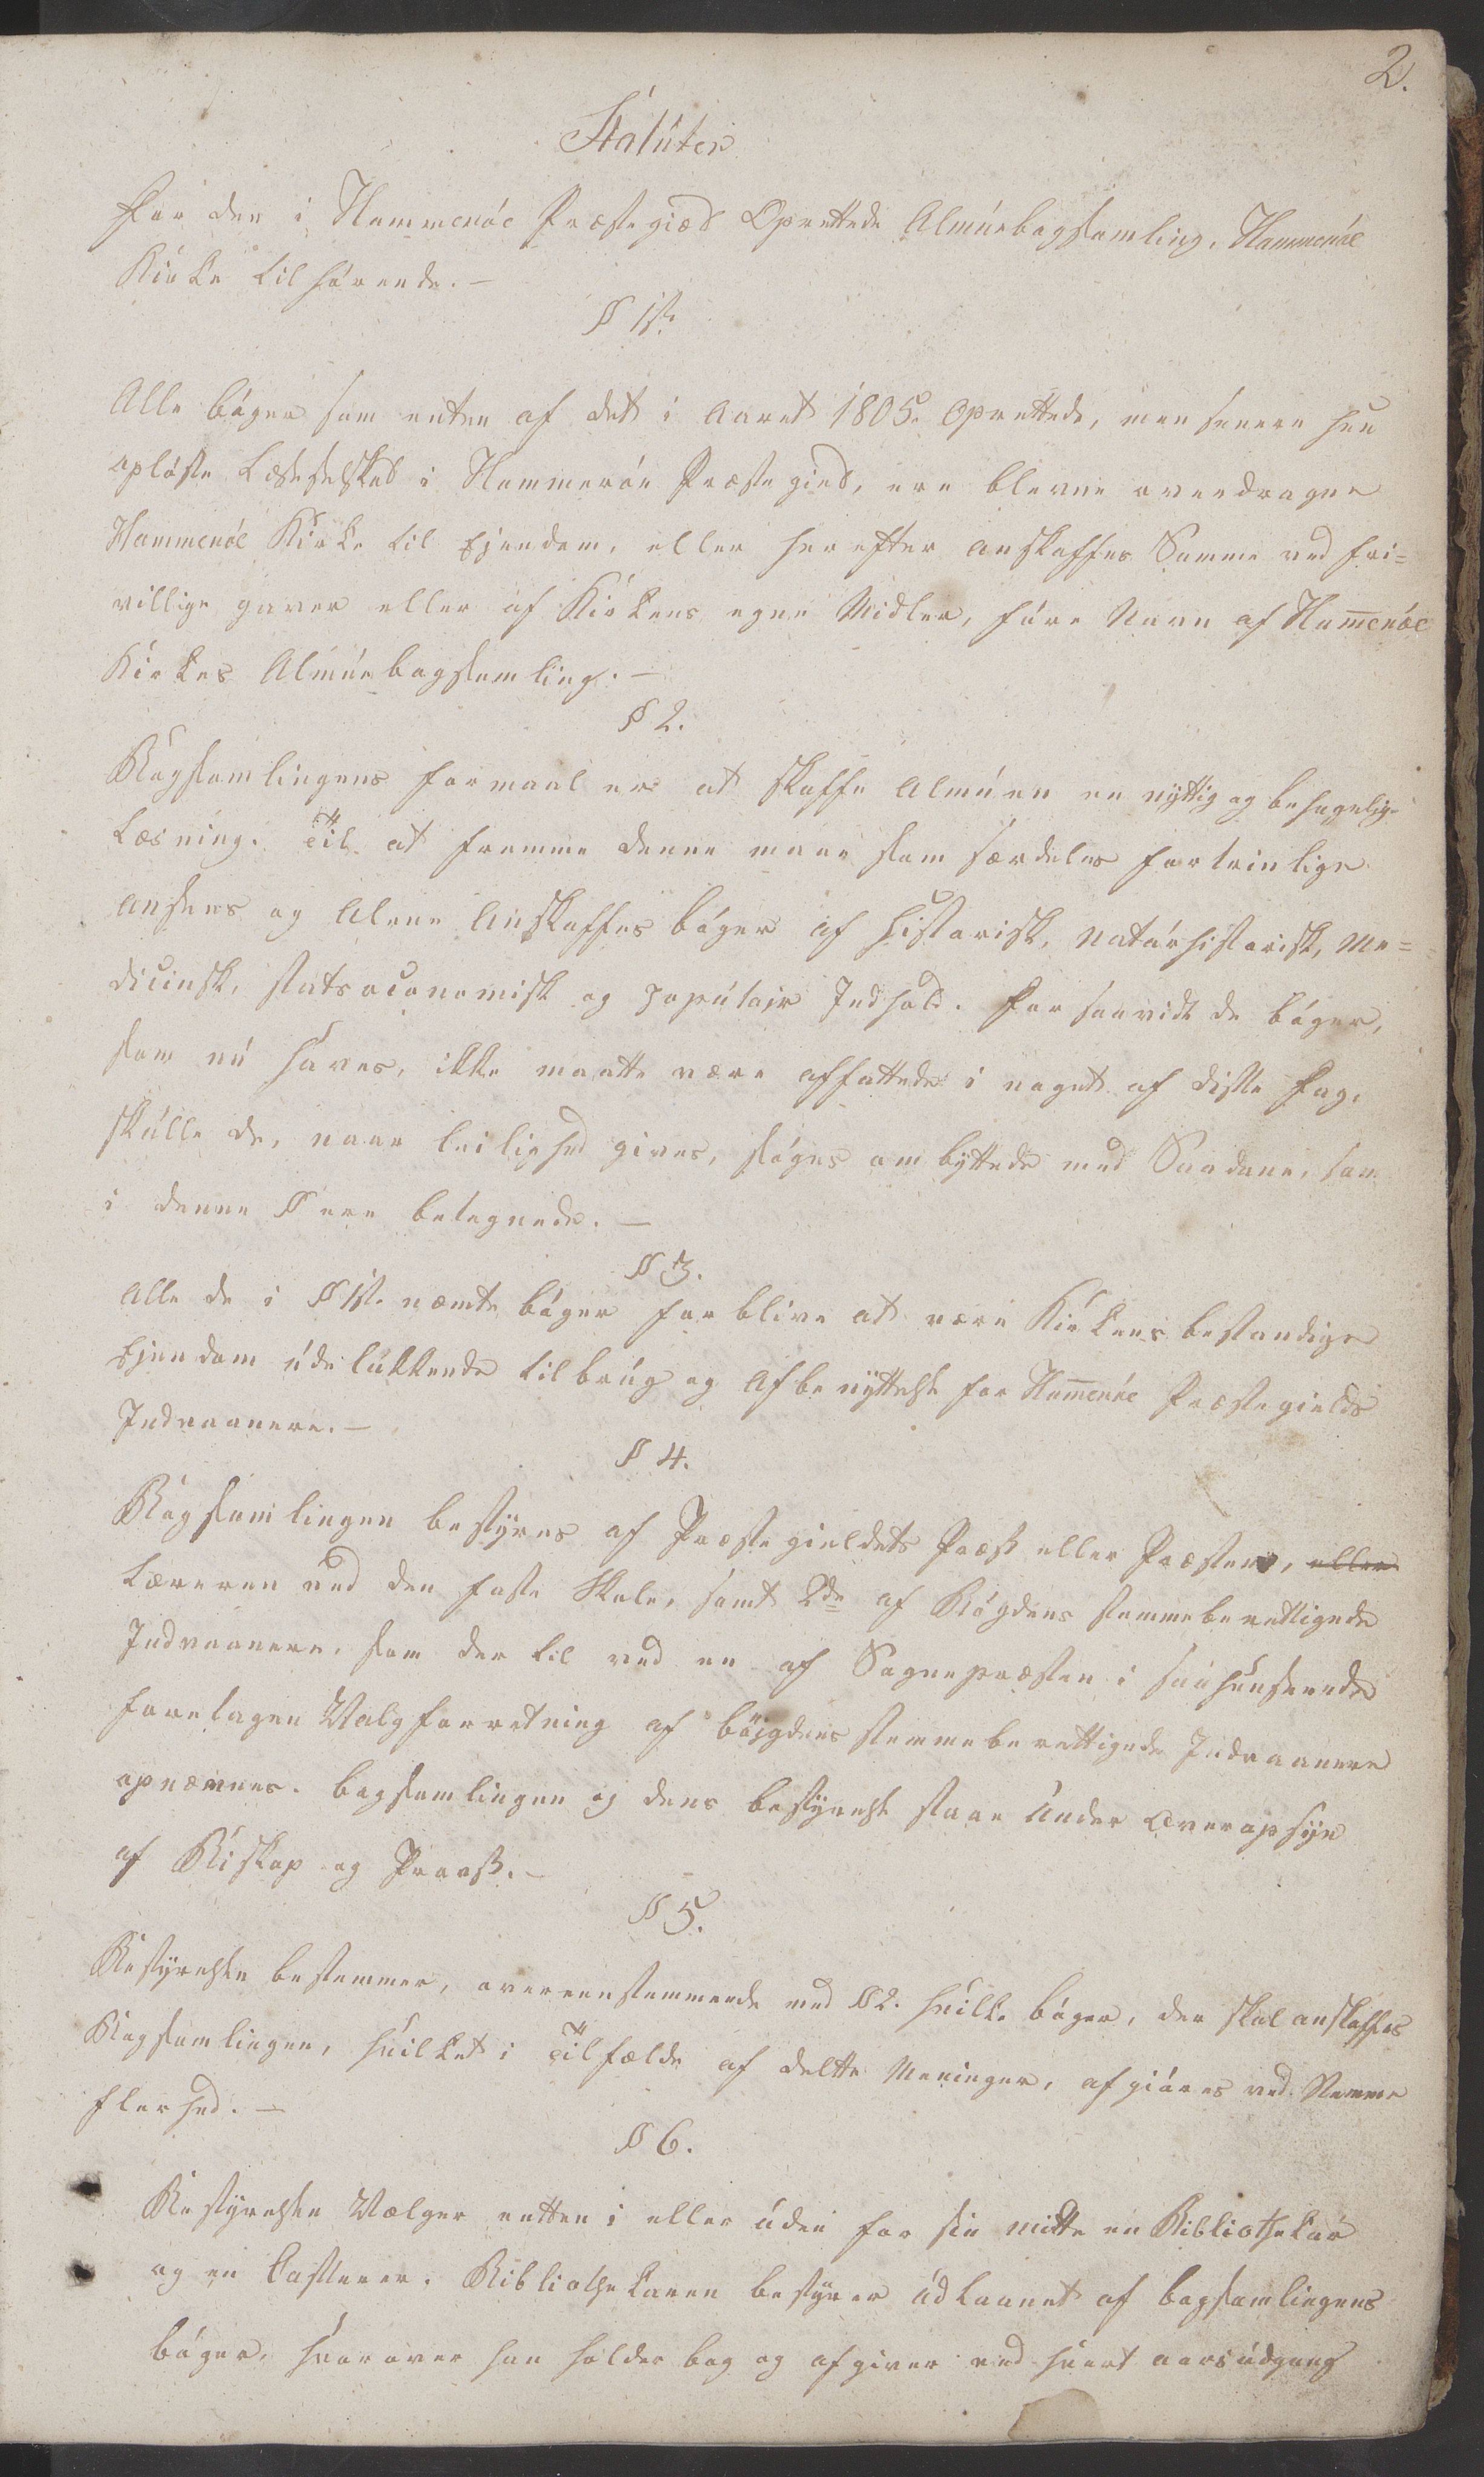 2.
Statuter
For den i Hammerøe Præstegield Oprettede Almuebogsamling, Hammerøe
Kirke tilhørende.—
§ 1ste
Alle bøger som enten af det i Aaret 1805. oprettede, men senere hen
opløste Læseselskab i Hammerøe Præstegield, ere blevne overdragne
Hammerøe Kirke til Ejendom, eller herefter anskaffes Samme ved fri=
villige gaver eller af Kirkens egne Midler, føre Navn af Ham̅erøe
Kirkes Almuebogsamling.—
§ 2.
Bogsamlingens formaal er at skaffe Almuen en nyttig og behagelig
Læsning. Til at fremme denne maae som særdeles fortrinlige
ansees og Alene Anskaffes bøger af historisk, naturhistorisk, me=
dicinsk, statsoconomisk og populair Indhold. For saavidt de bøger,
som nu haves, ikke maatte være affattede i noget af disse Fag,
skulle de, naar leilighed gives, søges ombyttede med Saadane, som
i denne § ere betegnede.—
§ 3.
Alle de i § 1ste nævnte bøger forblive at være Kirkens bestandige
Ejendom udelukkende til brug og Afbenyttelse for Ham̅erøe Præstegields
Indvaanere.—
§ 4.
Bogsamlingen bestyres af Præstegieldets Præst eller Præster, eller
Læreren ved den faste Skole, samt 2de af Bøgdens stemmeberettigede
Indvaanere, som der til ved en af Sognepræsten i saa henseende
foretagen Valgforretning af bøigdens stemmeberettigede Indvaanere
opnævnes. bogsamlingen og dens bestyrelse staae under Overopsyn
af Biskop og Provst.—
§ 5.
Bestyrelsen bestemmer, overeenstemmende med § 2. hvilke bøger, der skal anskaffes
Bogsamlingen, hvilket i Tilfælde af deelte Meninger, afgiøres ved Stemme
flerhed.—
§ 6.
Bestyrelsen Vælger enten i eller uden for sin midte en Bibliothekar
og en Casserer. Bibliothekaren bestyrer Udlaanet af bogsamlingens
bøger, hvorover han holder bog og afgiver ved hvert aars udgang